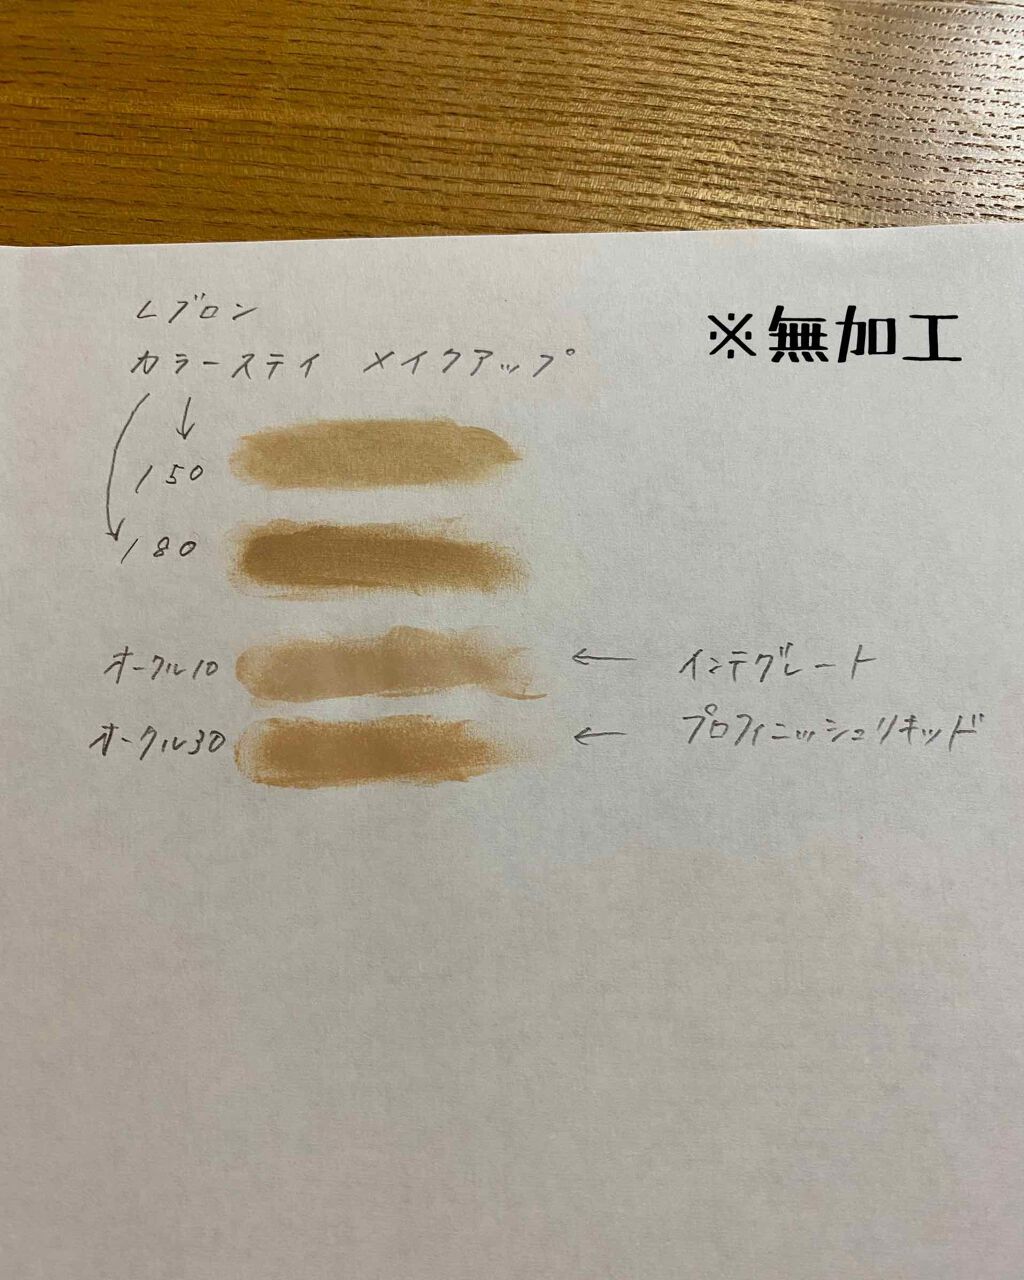 レブロン
※無加工
カラーステイ メイクアップ
150
180
オークル10
← インテグレート
オークル30
← プロフィニッシュリキッド